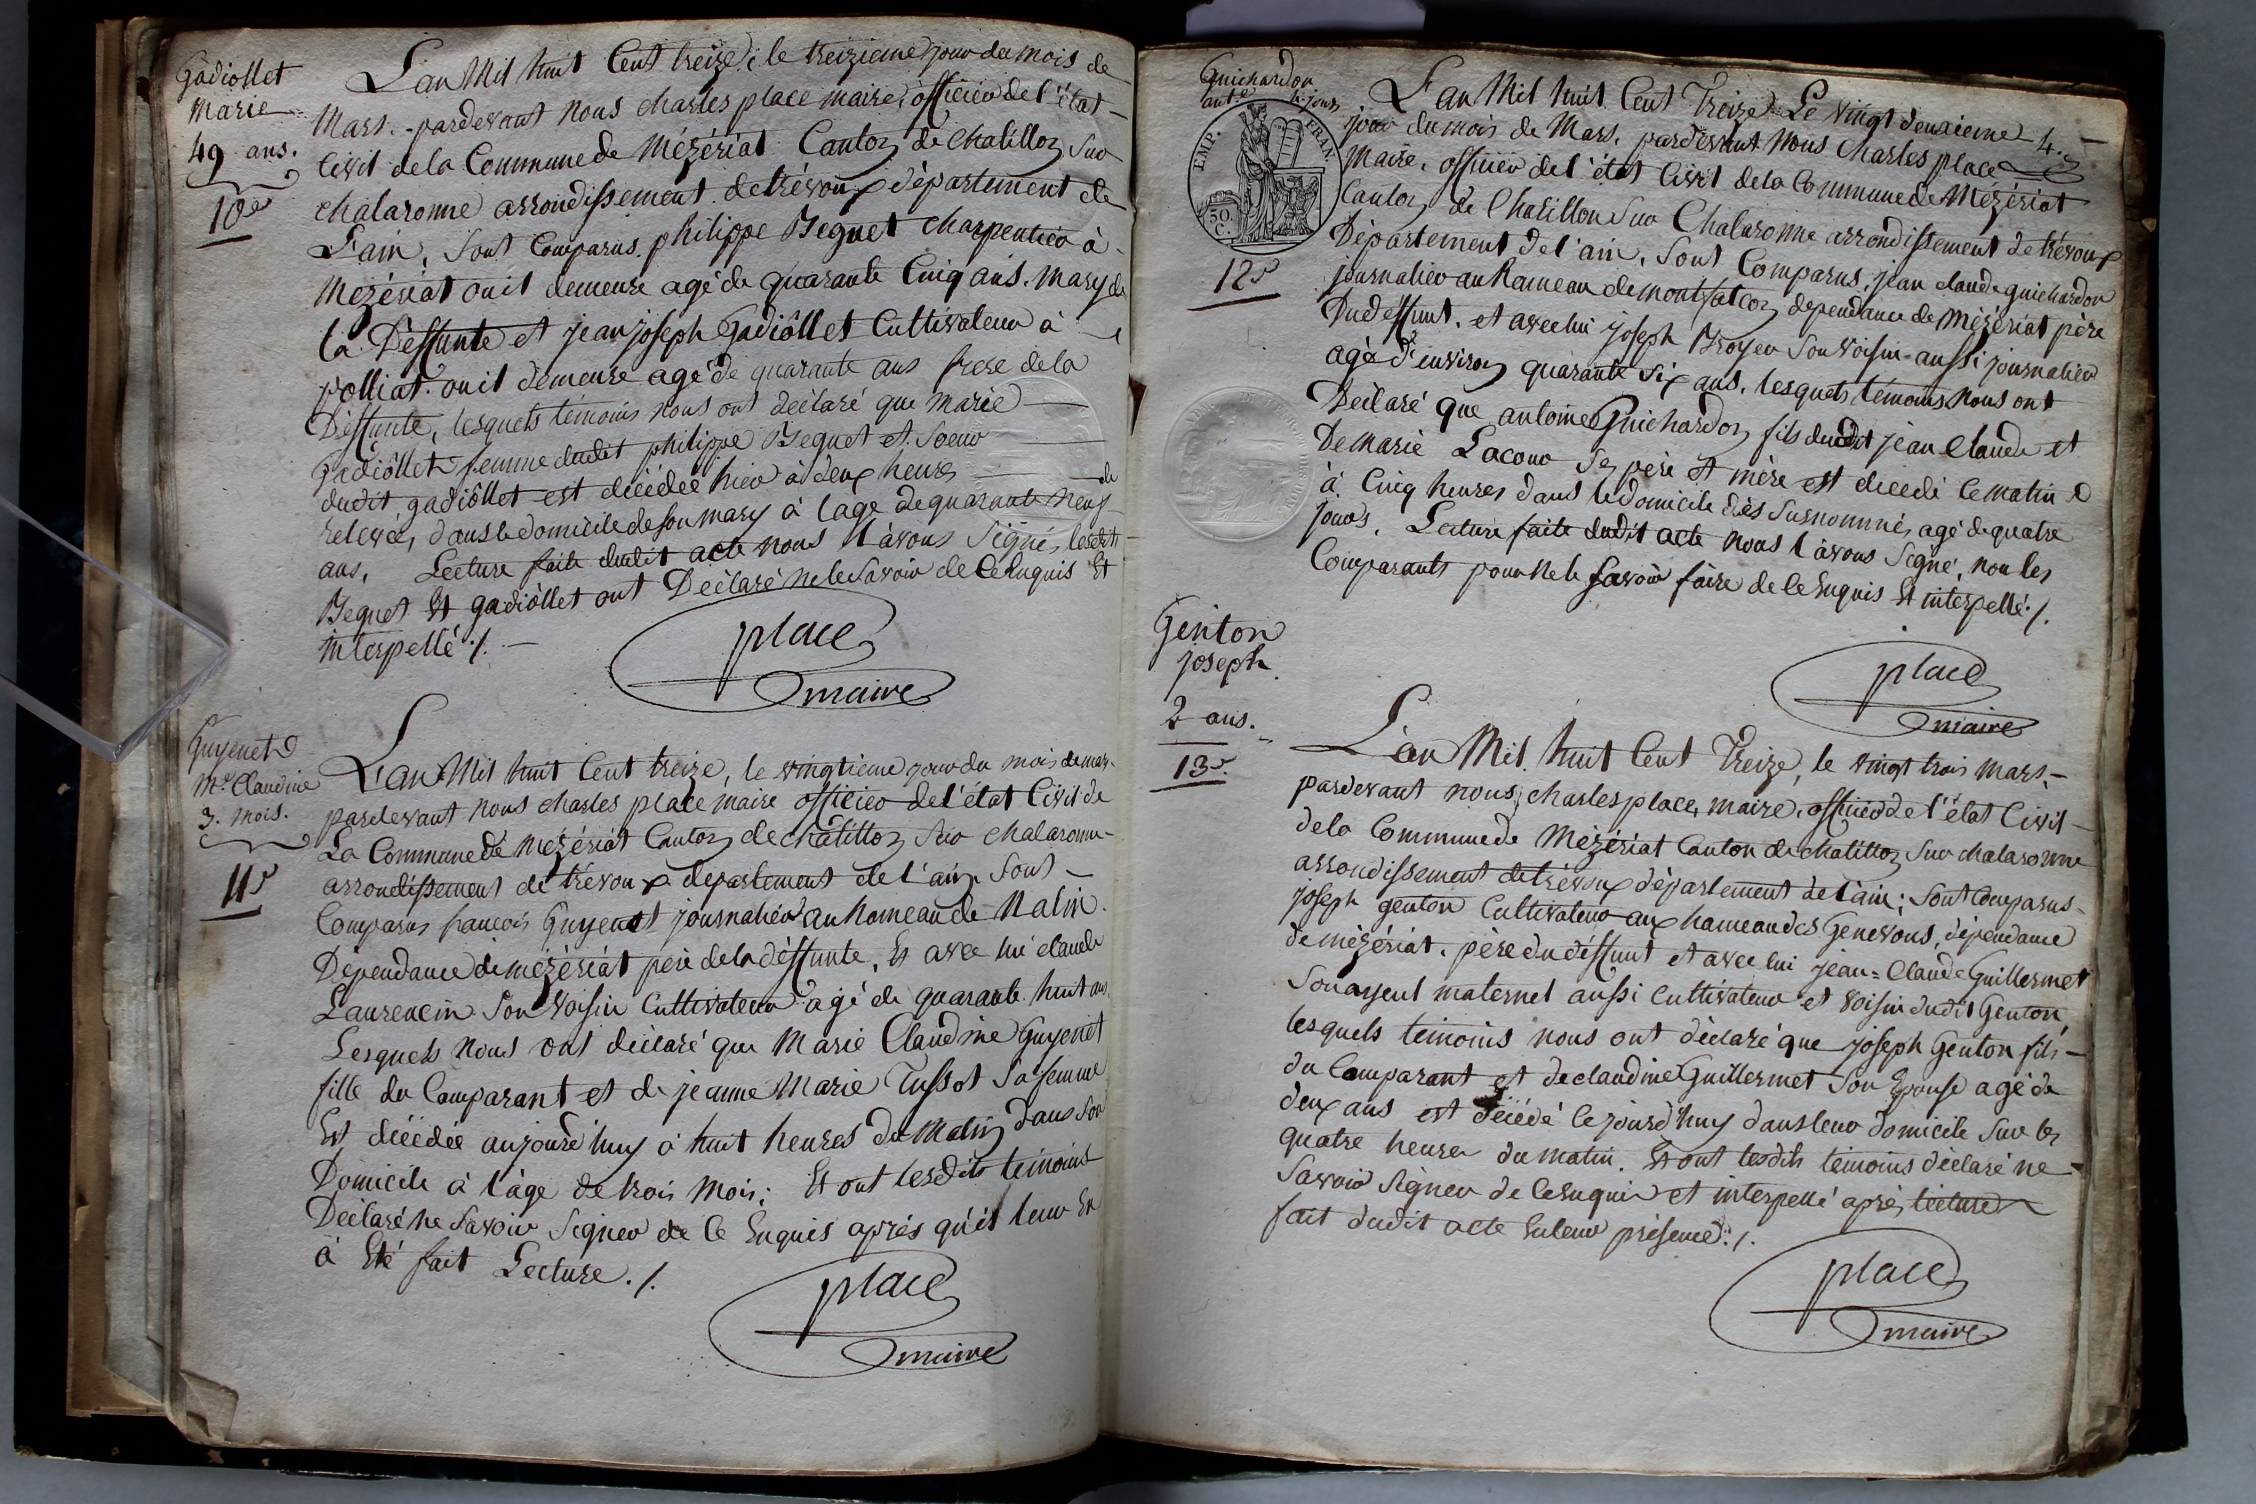 Gadiollet
Marie
49 ans.
10e
L'an Mil huit Cent treize; le treizieme jour du mois de
Mars. pardevant nous charles place maire, officier de l'état
Civil de la Commune de Mézériat Canton de chatillon sur
chalaronne arrondissement de trévoux département de
L'ain, sont Comparus philippe Beguet charpentier à
Mézériat ou il demeure agé de quarante Cinq ans. mary de
la Deffunte et jean joseph Gadiôllet Cultivateur à
polliat. ou il demeure agé de quarante ans frere de la
Deffunte, lesquels témoins nous ont déclaré que marie
Gadiôllet femme dudit philippe Beguet et soeur
dudit gadiôllet est décédée hier à deux heures de
relevée, dans le domicile de son mary à l'age de quarante neuf
ans, Lecture faite dudit acte nous l'avons signé, lesdits
Beguet Et gadiôllet ont Déclaré ne le savoir de ce Enquis Et
interpellé ./.
place
maire
Guyenet
Mie Claudine
3. mois.
11e
L'an Mil huit Cent treize, le vingtieme jour du mois de mars
pardevant nous charles place maire officier de l'état Civil de
La Commune de Mézériat Canton de châtillon sur chalaronne
arrondissement de trévoux département de l'ain sont
Comparus françois Guyenet journalier au hameau de
Dépendance de mézériat père de la déffunte, Et avec lui claude
Laurencin son voisin Cultivateur agé de quarante huit ans
Lesquels nous ont déclaré que Marie Claudine Guyenet
fille du Comparant et de jeanne Marie Tussot sa femme
Est décédée aujourd'huy à huit heures du Matin dans son
Domicile à l'âge de trois mois; Et ont lesdits témoins
Déclaré ne savoir signer de ce Enquis aprés qu'il leur En
à Eté fait Lecture ./.
place
maire
Guichardon
ant.e 4. jours
EMP. FRAN.
50. C.
12e
L'an Mil huit Cent Treize Le vingt deuxieme
jour du mois de Mars, pardevant Nous Charles place
Maire, officier de l'état Civil de la Commune de Mézériat
Canton de Chatillon sur Chalaronne arrondissement de trévoux
Département de l'ain, sont Comparus, jean claude guichardon
journalier au hameau de montfalcon dependance de Mézériat père
Du déffunt, et avec lui joseph Broyer son voisin aussi journalier
agé d'environ quarante six ans, lesquels témoins nous ont
Déclaré que antoine Guichardon fils dudit jean Claude et
De marie Lacour ses père Et mère est décédé ce matin
à Cinq heures dans le domicile dès susnommés, agé de quatre
jours, Lecture faite dudit acte nous l'avons signé, non les
Comparants pour ne le savoir faire de ce Enquis Et interpellé ./.
place
maire
Genton
joseph
2 ans.
13e
L'an Mil huit Cent Treize, le vingt trois mars
pardevant nous, charles place, maire, officier de l'état Civil
de la Commune de Mézériat Canton de chatillon sur chalaronne
arrondissement de trévoux département de l'ain; sont comparus
joseph genton Cultivateur aux hameau des Genevons, dépendance
de mézériat, père du déffunt et avec lui jean=Claude Guillermet
son ayeul maternel aussi Cultivateur et voisin dudit Genton,
lesquels témoins nous ont déclaré que joseph Genton fils
du Comparant et de claudine Guillermet son Epouse agé de
deux ans est décédé ce jourd'huy dans leur domicile sur les
quatre heures du matin. Et ont lesdits témoins déclaré ne
savoir signer de ce Enquis et interpellé après lecture
fait dudit acte En leur présence ./.
place
maire